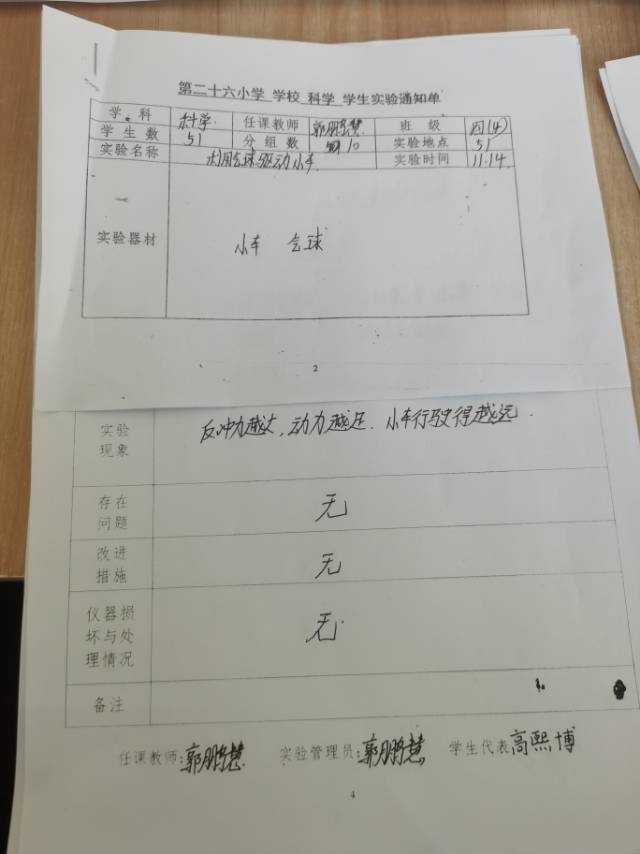 第二十六小学 学校 科学 学生实验通知单
学 科 科学 任课教师 郭鹏慧 班 级 四(4)
学生数 51 分组数 10 实验地点 51
实验名称 利用气球驱动小车 实验时间 11.14
实验器材 小车 气球
2
实验现象 反冲力越大,动力越足.小车行驶得越远.
存在问题 无
改进措施 无
仪器损坏与处理情况 无.
备注
任课教师:郭鹏慧 实验管理员:郭鹏慧 学生代表 高熙博
4